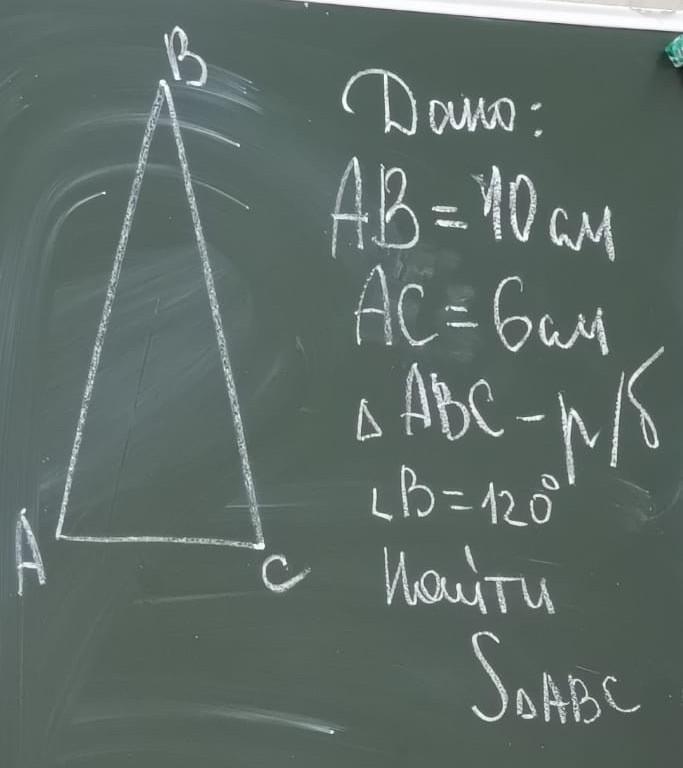 B
A
C
Дано:
AB = 10 см
AC = 6 см
△ ABC - р/б
∠B = 120°
Найти
S△ABC